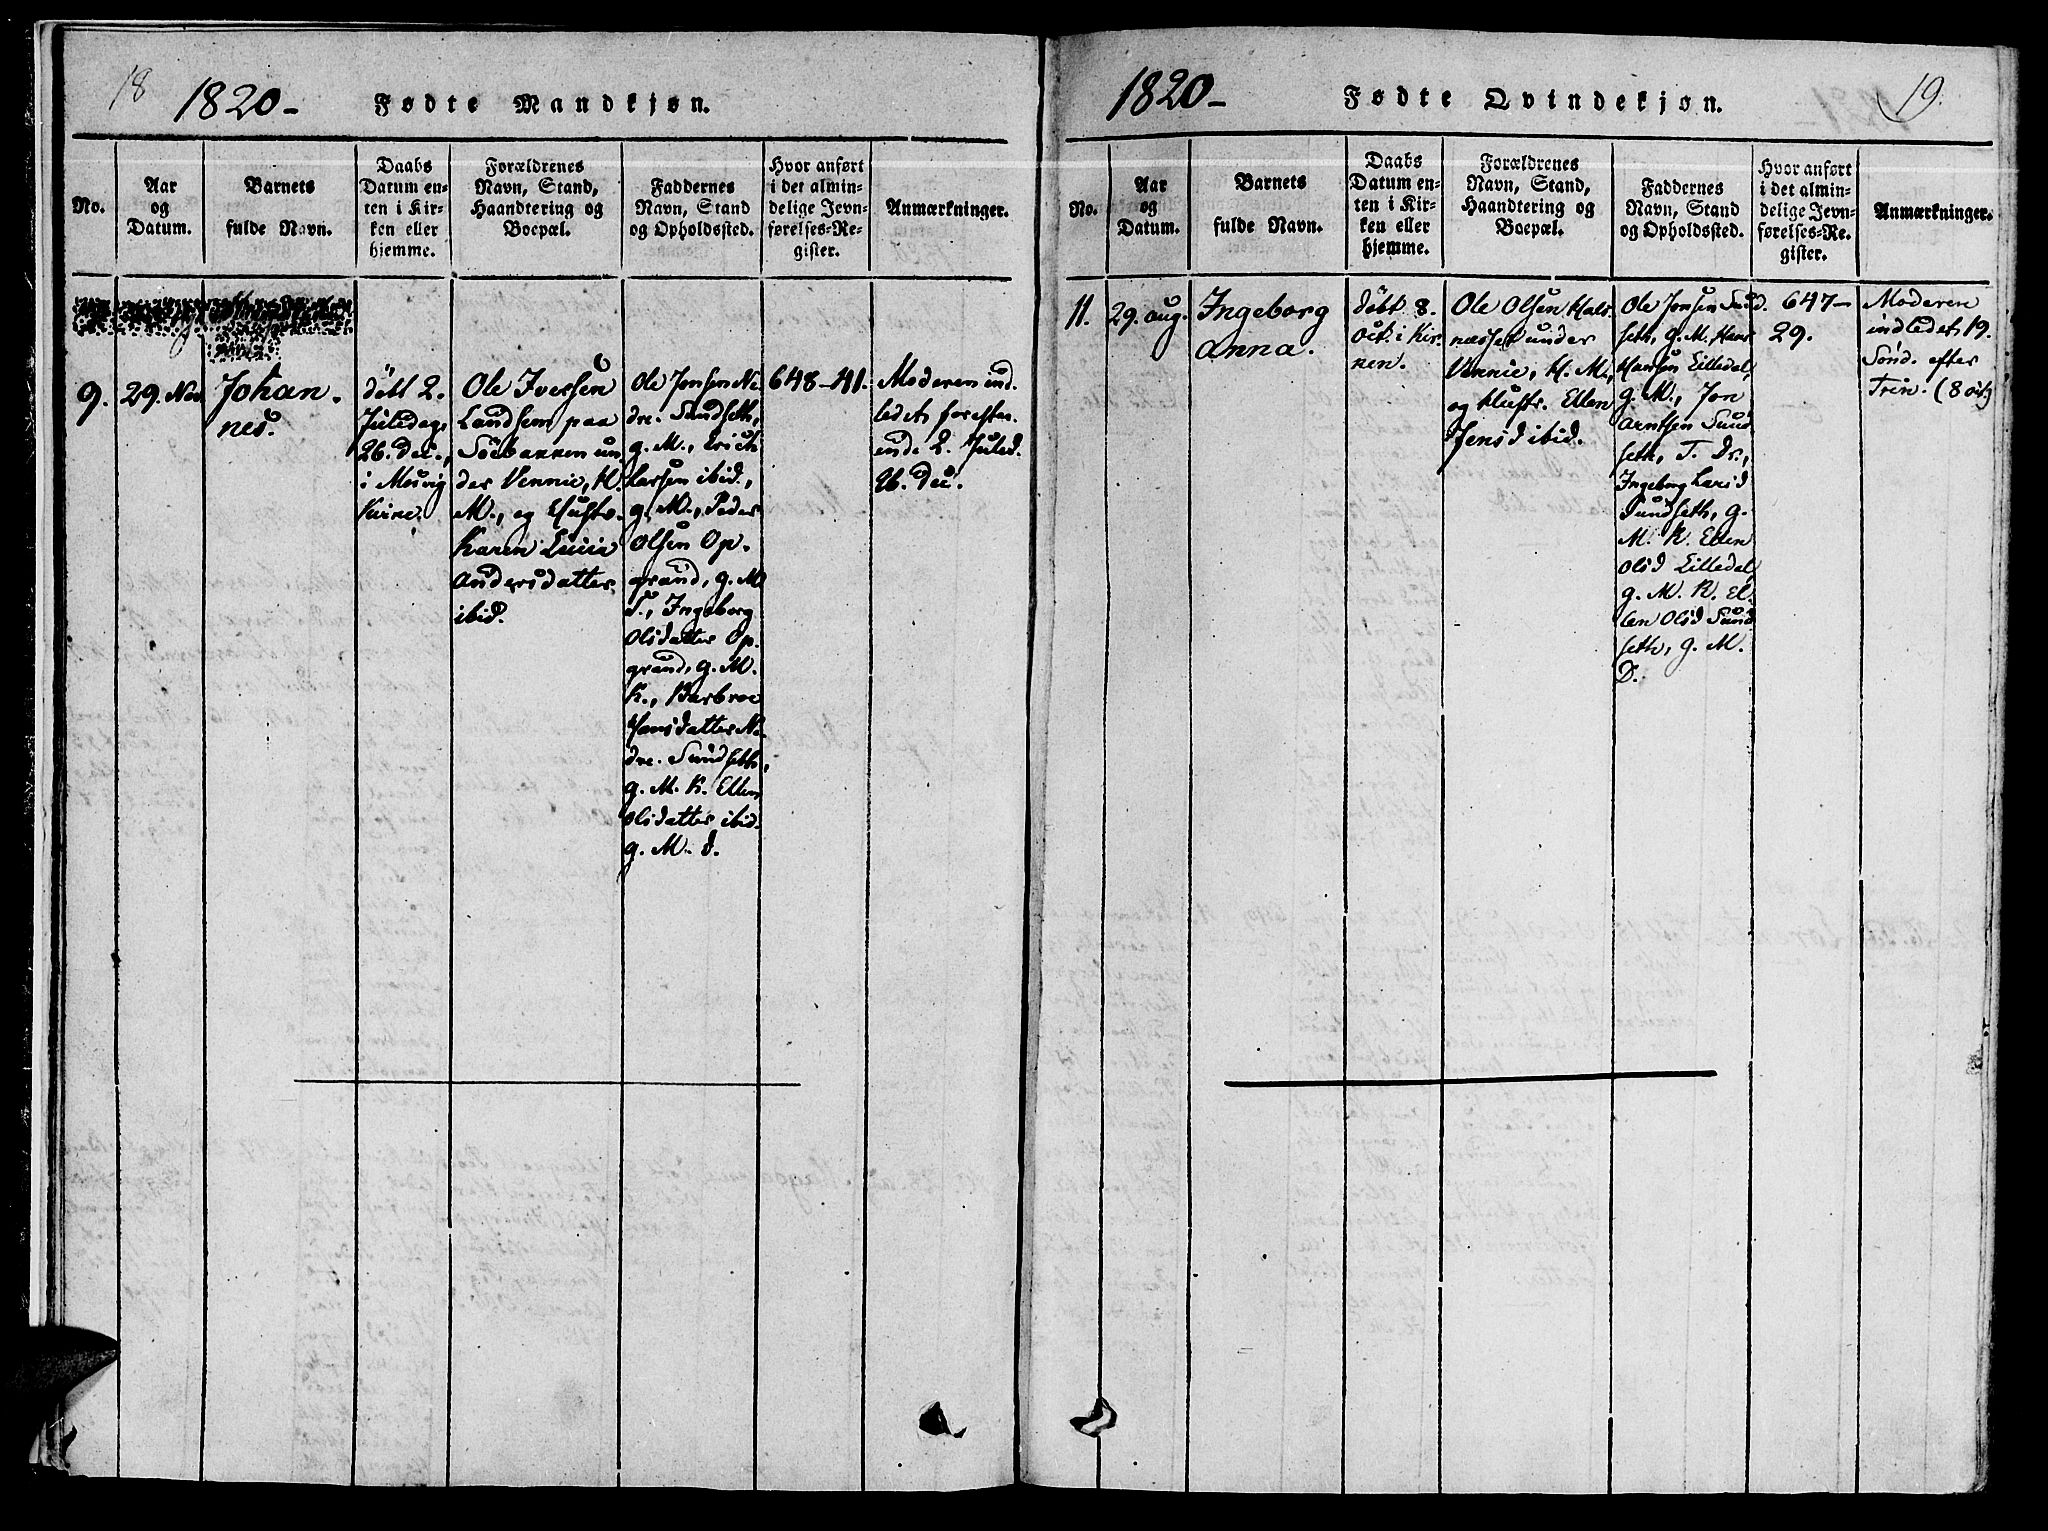 18
1820-
Fødte Mandkjøn.
No.
Aar
og
Datum.
Barnets
fulde Navn.
Daabs
Datum en-
ten i Kir-
ken eller
hjemme.
Forældrenes
Navn, Stand,
Haandtering og
Boepæl.
Faddernes
Navn, Stand
og Opholdssted.
Hvor anført
i det almin-
delige Jevn-
førelses-Re-
gister.
Anmærkninger.
9.
29. Nov.
Johan-
nes.
döbt 2.
Juledag,
26. Dec.,
i Mosvig
Kirke.
Ole Iversen
Landsem paa
Söebakken un-
der Vennie, H.
M., og Hustr.
Karen Lucia
Andersdatter
ibid.
Ole Jonsen Ne-
dre. Sundseth,
g. M., Erich
Larsen ibid.,
g. M., Peder
Olsen Op-
grand, g. M.
T., Ingeborg
Olsdatter Op-
grand, g. M.
K., Barbroe
Hansdatter Ne-
dre. Sundseth,
g. M. K. Ellen
Olsdatter ibid.
g. M. d.
648-41.
Moderen ind-
ledet foreften-
ende 2. Juled.
26. Dec.
1820-
Fødte Qvindekjøn.
19.
No.
Aar
og
Datum.
Barnets
fulde Navn.
Daabs
Datum en-
ten i Kir-
ken eller
hjemme.
Forældrenes
Navn, Stand,
Haandtering og
Boepæl.
Faddernes
Navn, Stand
og Opholdssted.
Hvor anført
i det almin-
delige Jevn-
førelses-Re-
gister.
Anmærkninger.
11.
29. Aug.
Ingeborg
Anna.
döbt 8.
Oct. i Kir-
ken.
Ole Olsen Hals-
næsset under
Vennie, H. M.,
og Hustr. Ellen
Jensd ibid.
Ole Jonsen Sund-
seth, g. M. Hans
Hansen Lilledal,
g. M., Jon
Arntsen Sund-
seth, T. Dr.,
Ingeborg Larsd
Sundseth, g.
M. K. Ellen
Olsd Lilledal,
g. M. K. El-
len Olsd Sund-
seth, g. M.
D.
647-
29.
Moderen
indledet 19.
Sönd. efter
Trin. (8 Oct)